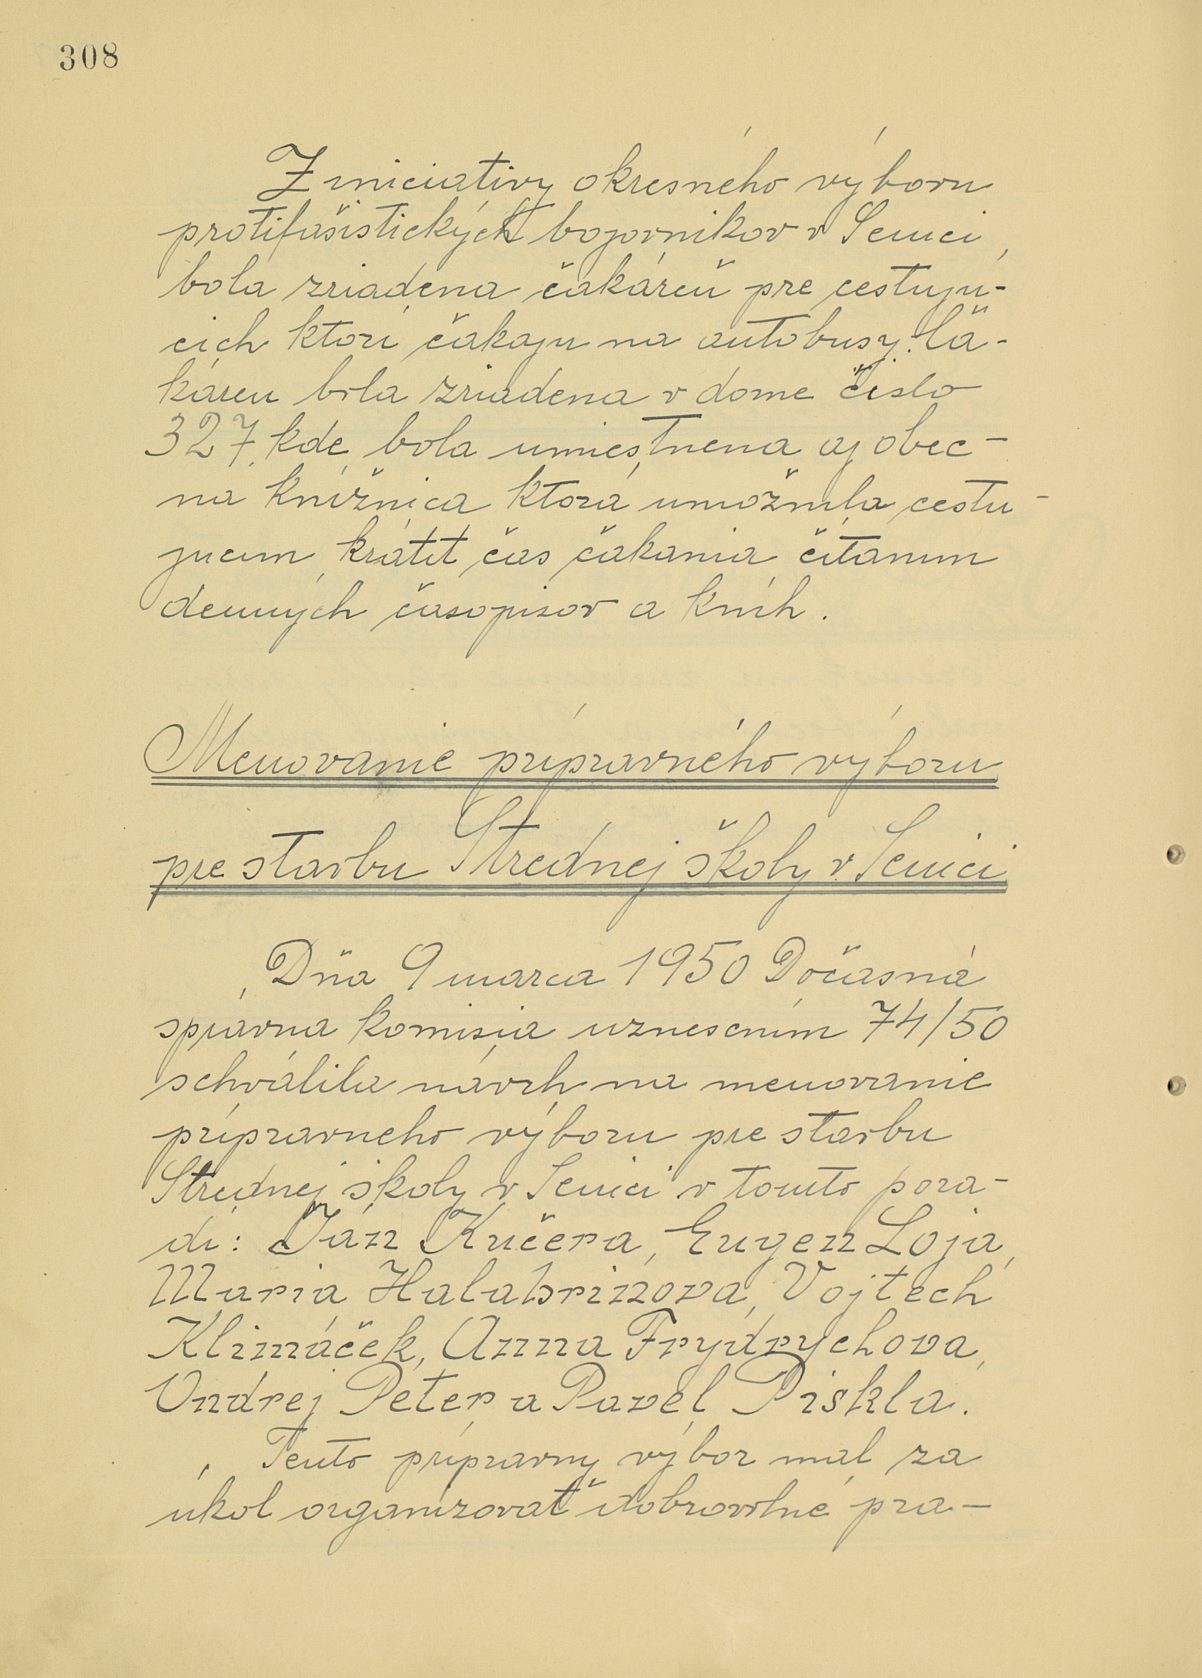 308
Z iniciativy okresného výboru
protifašistických bojovnikov v Senici,
bola zriadena čakáreň pre cestuju-
cich ktorí čakaju na autobusy. Čá-
káreu bola zriadena v dome čislo
327, kde bola umiestnena aj obec-
na knižnica ktorá umožnila cestu-
jucim krátit čas čakania čítanim
denných časopisov a kníh.
Menovanie prípravného výboru
pre stavbu Strednej školy v Senici
Dňa 9 marca 1950 Dočasná
správna komisia uznesením 74/50
schválila návrh na menovanie
prípravneho výboru pre stavbu
Strednej školy v Senici v tomto pora-
dí: Ján Kučera, Eugen Loja,
Maria Halabrinova, Vojtech
Klimáček, Anna Frydrychova,
Ondrej Peter a Pavel Piskla.
Tento prípravny výbor mal za
úkol organizovať dobrovolné pra-